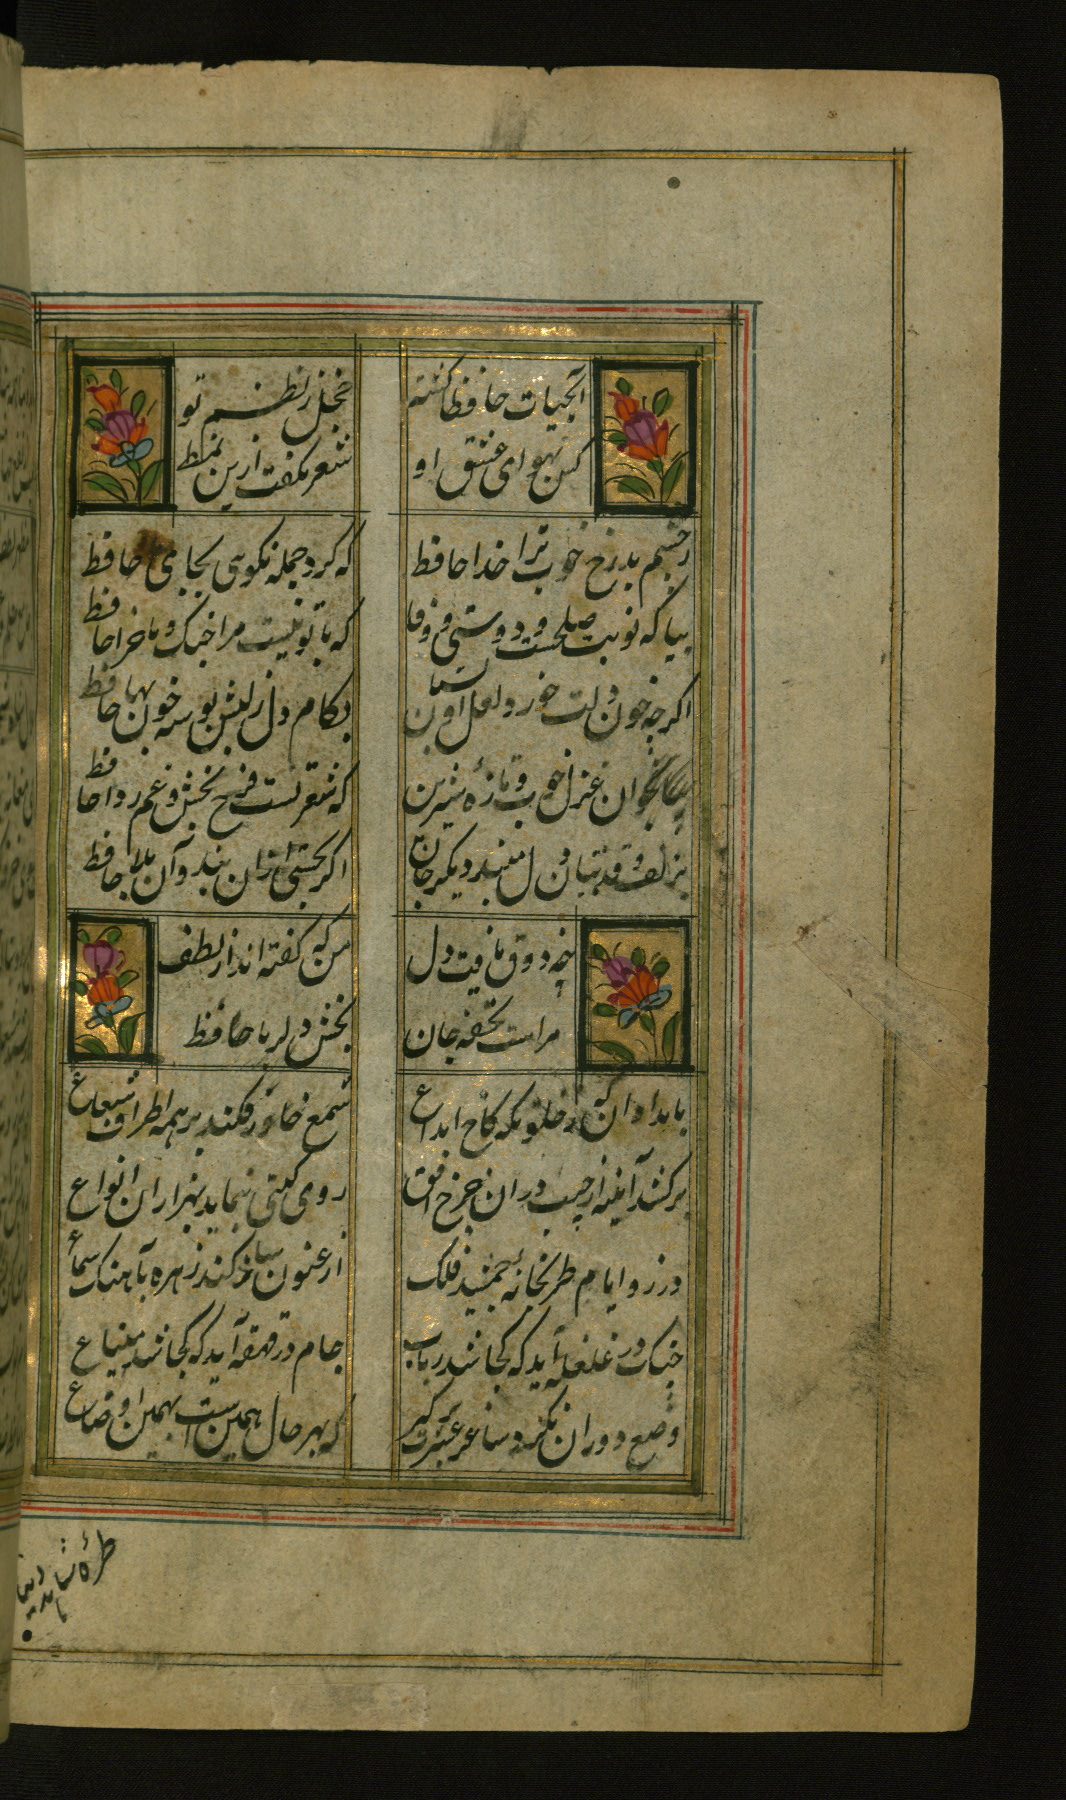 آبحیات حافظا گشته خجل ز نظم تو
کس بهوای عشق او شعر نگفت ازین نمط
ز چشم بد رخ خوب ترا خدا حافظ که کرد جمله نکویی بجای ما حافظ
بیا که نوبت صلحست و دوستی و وفا که با تو نیست مرا جنک و ماجرا حافظ
اگرچه خون دلت خورد لعل او بستان بکام دل ز لبش بوسه خون بها حافظ
بیا بخوان غزل خوب و تازه شیرین که شعر تست فرح بخش و غم زدا حافظ
بزلف و قد بتان دل مبند دیگر جان اگر بجستی ازان بند و آن بلا حافظ
دل من که گفته‌اند از لطف
مراست تحفه جان بخش دلربا حافظ
بامدادان که ز خلوتگه کاخ ابداع شمع خاور فکند بر همه اطراف شعاع
برکشد آینه از جیب دران چرخ افق روی گیتی بنماید بهزاران انواع
در زوایای طربخانه جمشید فلک ارغنون ساز کند زهره بآهنک سماع
چنک در غلغله آید که کجا شد رباب جام در قهقه آید که کجا شد مناع
وضع دوران نگر ساغر عشرت گیر که بهر حال همین است بهین اوضاع
طره شاهد دنیا